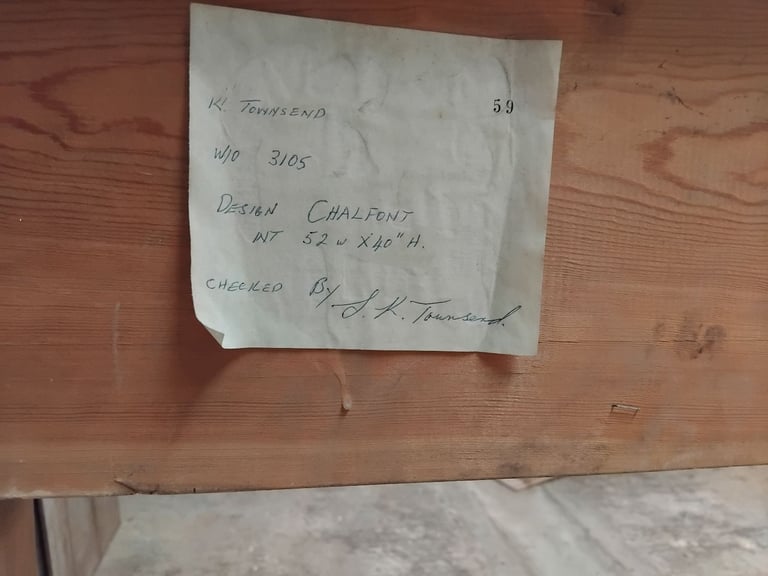 K. TOWNSEND 59
W/O 3105
DESIGN CHALFONT
INT 52 W X 40" H.
CHECKED BY J. K. Townsend.